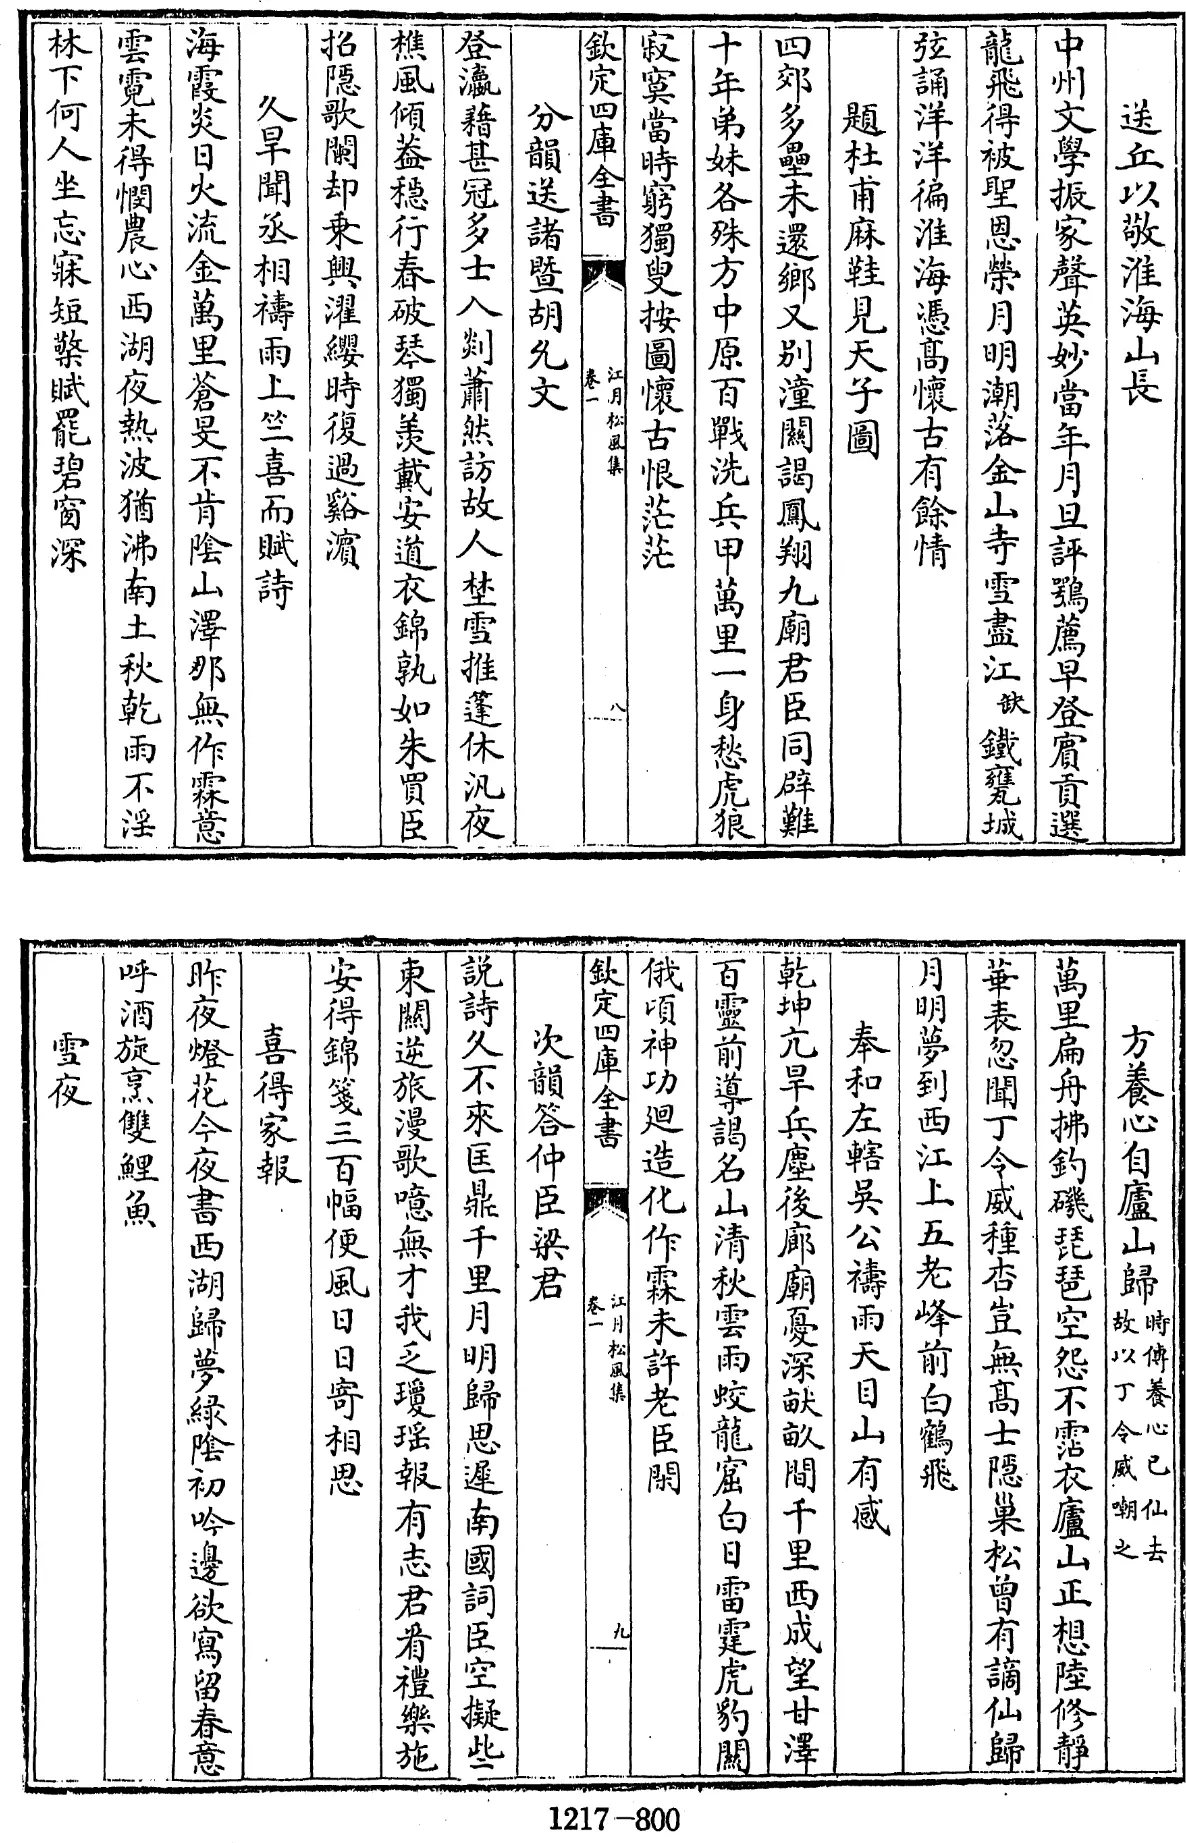 送丘以敬淮海山長
中州文學振家聲英妙當年月旦評鶚薦早登賓貢選
龍飛得被聖恩榮月明潮落金山寺雪盡江缺鐵甕城
弦誦洋洋徧淮海憑髙懷古有餘情
題杜甫麻鞋見天子圖
四郊多壘未還鄉又别潼關謁鳳翔九廟君臣同辟難
十年弟妹各殊方中原百戰洗兵甲萬里一身愁虎狼
寂寞當時窮獨叟按圖懷古恨茫茫
欽定四庫全書
江月松風集
卷一
八
分韻送諸暨胡允文
登瀛藉甚冠多士入剡蕭然訪故人埜雪推蓬休汎夜
樵風傾葢穩行春破琴獨羨戴安道衣錦孰如朱買臣
招隠歌闌却乗興濯纓時復過谿濵
久旱聞丞相禱雨上竺喜而賦詩
海霞炎日火流金萬里蒼旻不肯隂山澤那無作霖意
雲霓未得憫農心西湖夜熱波猶沸南土秋乾雨不淫
林下何人坐忘寐短檠賦罷碧窗深
方養心自廬山歸時傅養心已仙去故以丁令威嘲之
萬里扁舟拂釣磯琵琶空怨不霑衣廬山正想陸修靜
華表忽聞丁令威種杏豈無髙士隠巢松曾有謫仙歸
月明夢到西江上五老峰前白鶴飛
奉和左轄吳公禱雨天目山有感
乾坤亢旱兵塵後廊廟憂深畎畝間千里西成望甘澤
百靈前導謁名山清秋雲雨蛟龍窟白日雷霆虎豹關
俄頃神功廻造化作霖未許老臣閑
欽定四庫全書
江月松風集
卷一
九
次韻答仲臣梁君
説詩久不來匡鼎千里月明歸思遲南國詞臣空擬些
東關逆旅漫歌噫無才我乏瓊瑶報有志君看禮樂施
安得錦箋三百幅便風日日寄相思
喜得家報
昨夜燈花今夜書西湖歸夢緑隂初吟邊欲寫留春意
呼酒旋烹雙鯉魚
雪夜
1217-800